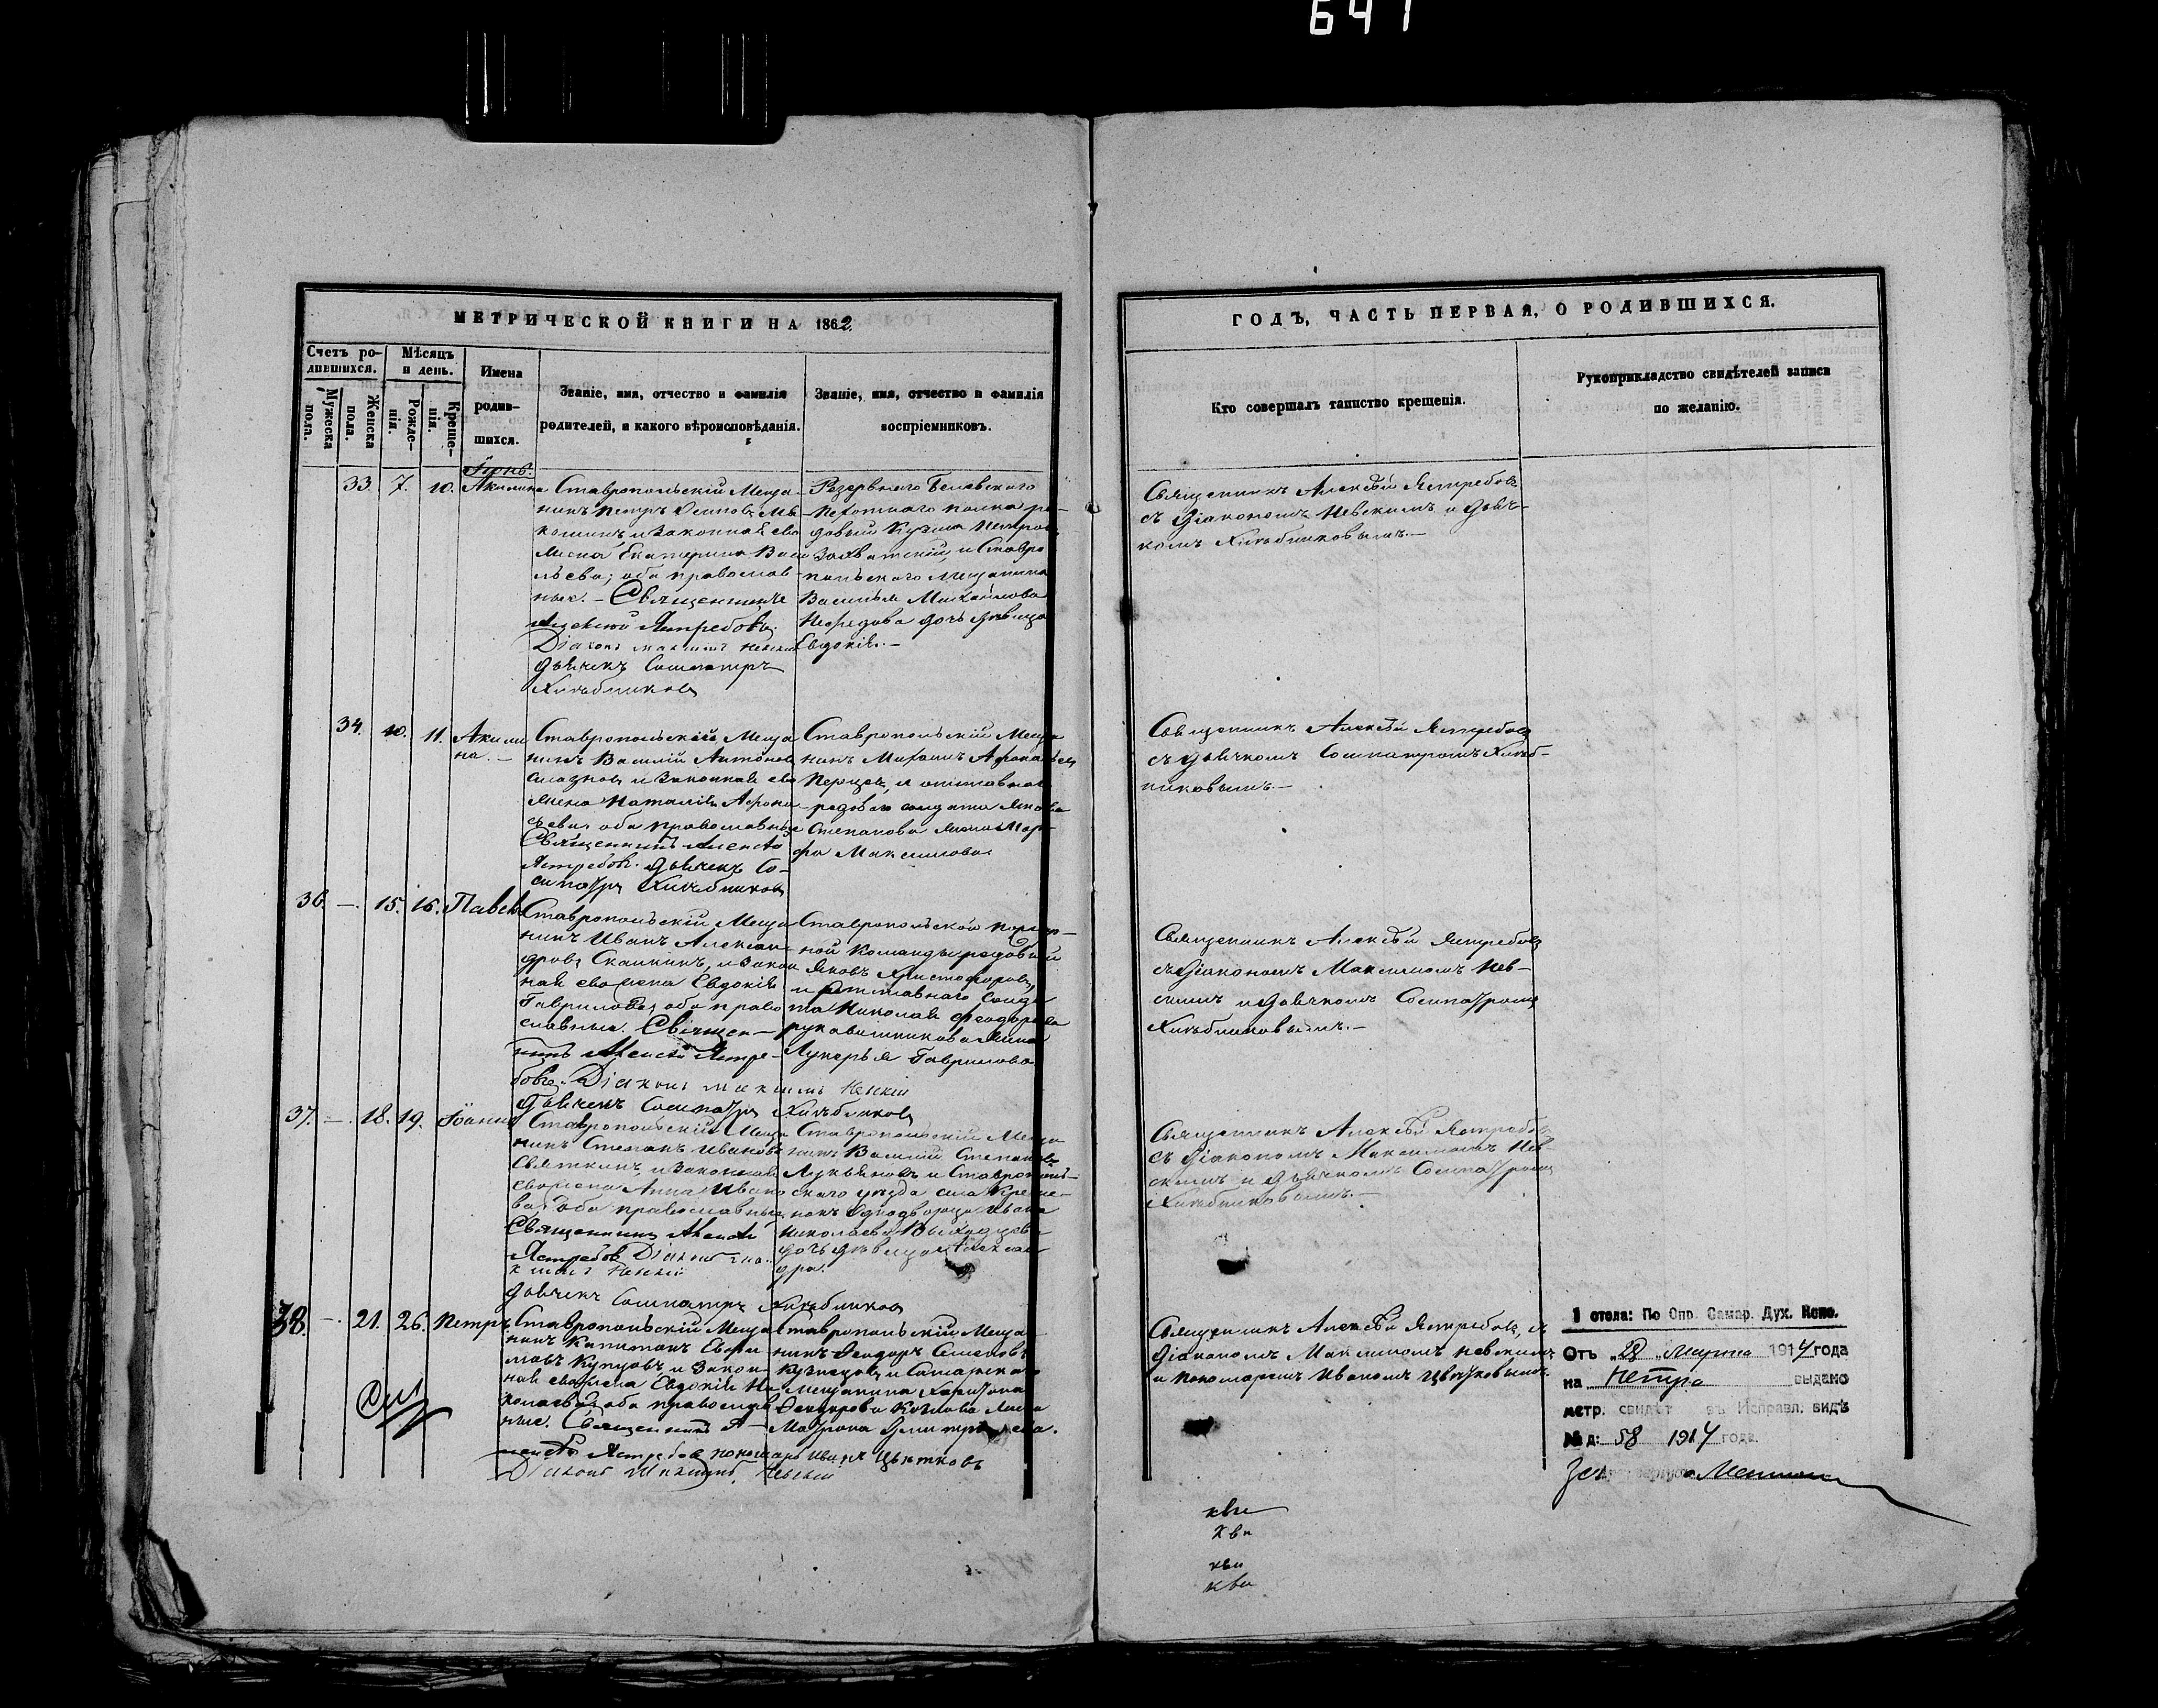 641
МЕТРИЧЕСКОЙ КНИГИ НА 1862
Счетъ ро-
дившихся.
Мѣсяцъ
и день.
Мужеска
пола.
Женска
пола.
Рожде-
нія.
Креще-
нія.
Имена
родив-
шихся.
Званіе, имя, отчество и фамилія
родителей, и какого вѣроисповѣданія.
Званіе, имя, отчество и фамилія
воспріемниковъ.
Іюнь.
33. 7. 10. Акилина
Ставропольскій Меща-
нинъ Петръ Осиповъ
и законная его
жена Екатерина Васи
льева; оба православ-
ные. – Священникъ
Алексѣй Ястребовъ.
Діаконъ Максимъ Невскій
дьячекъ Сосипатръ
Хлѣбниковъ
Резервнаго Белевскаго
Пехотнаго полка ря-
довый Кузьма Петровъ
и Ставро
польского Мещанина
Василья Михайлова
дочь дѣвица
Евдокія. –
34. 10. 11. Акили
на. –
Ставропольскій Меща
нинъ Василій Антоновъ
и законная его
жена Наталія Афона
сьева оба православные
Священникъ Алексѣй
Ястребовъ. дьячекъ Со-
сипатръ Хлѣбниковъ
Ставропольскій Меща
нинъ Михаилъ Афонасьевъ
и отставнаго
рядоваго солдата Якова
Степанова жена Мар-
фа Максимова
36. –. 15. 16. Павелъ
Ставропольскій Меща
нинъ Иванъ Алексан-
дровъ Скалкинъ, и закон
ная его жена Евдокія
Гаврилова, оба право
славные. Священ-
никъ Алексѣй Ястре-
бовъ. Діаконъ Максимъ Невскій
дьячекъ Сосипатръ Хлѣбниковъ
Ставропольской
ной Команды рядовый
Яковъ Христофоровъ,
и отставнаго Солда
та Николая Феодорова
Рукавишникова жена
Лукерья Гаврилова
37. –. 18. 19. Іоаннъ
Ставропольскій Меща
нинъ Степанъ Ивановъ
Святкинъ, и законная
его жена Анна Ивано
ва, оба православные
Священникъ Алексѣй
Ястребовъ Діаконъ Ма
ксимъ Невскій
дьячекъ Сосипатръ Хлѣбниковъ
Ставропольскій Меща
нинъ Василій Степановъ
Лукьяновъ и Ставрополь-
скаго уѣзда села
Однодворца Ивана
Николаева
дочь дѣвица Алексан
дра.
38. –. 21. 26. Петръ
Ставропольскій Меща
нинъ Капитонъ
Купцовъ и закон-
ная его жена Евдокія Ни
колаева, оба православ
ные. Священникъ А-
лексѣй Ястребовъ пономарь Иванъ Цвѣтковъ
Діаконъ Максимъ Невскій
Ставропольскій Меща
нинъ Феодоръ Семеновъ
Кузнецовъ и Самарскаго
Мещанина Харитона
Феодорова Козлова жена
Матрона Дмитріева.
ГОДЪ, ЧАСТЬ ПЕРВАЯ, О РОДИВШИХСЯ.
Кто совершалъ таинство крещенія.
Рукоприкладство свидѣтелей записи
по желанію.
Священникъ Алексѣй Ястребовъ
съ Діакономъ Невскимъ и дьяч-
комъ Хлѣбниковымъ. –
Священникъ Алексѣй Ястребовъ
съ дьячкомъ Сосипатромъ Хлѣб-
никовымъ. –
Священникъ Алексѣй Ястребовъ
съ Діакономъ Максимомъ Нев-
скимъ и дьячкомъ Сосипатромъ
Хлѣбниковымъ. –
Священникъ Алексѣй Ястребовъ
съ Діакономъ Максимомъ Нев-
скимъ и дьячкомъ Сосипатромъ
Хлѣбниковымъ. –
Священникъ Алексѣй Ястребовъ, съ
Діакономъ Максимомъ Невскимъ
и пономаремъ Иваномъ Цвѣтковымъ.
I стола: По Опр. Самар. Дух. Конс.
Отъ „28„ Марта 1914 года
на Петра выдано
метр. свидѣт въ Исправл. видѣ
№ д: 58 1914 года.